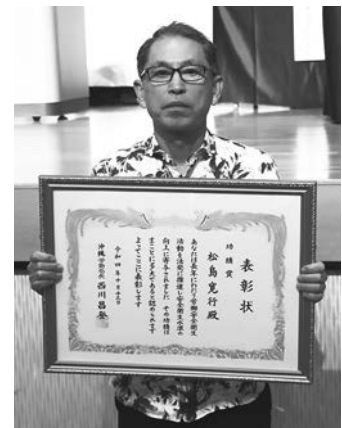 表彰状
功績賞
松島寛行殿
あなたは長年にわたり労働安全衛生
活動を活発に推進し安全衛生水準の
向上に寄与されました その功績は
まことに多大であると認められます
よってここに表彰します
令和四年十月十三日
沖縄労働局長 西川昌登